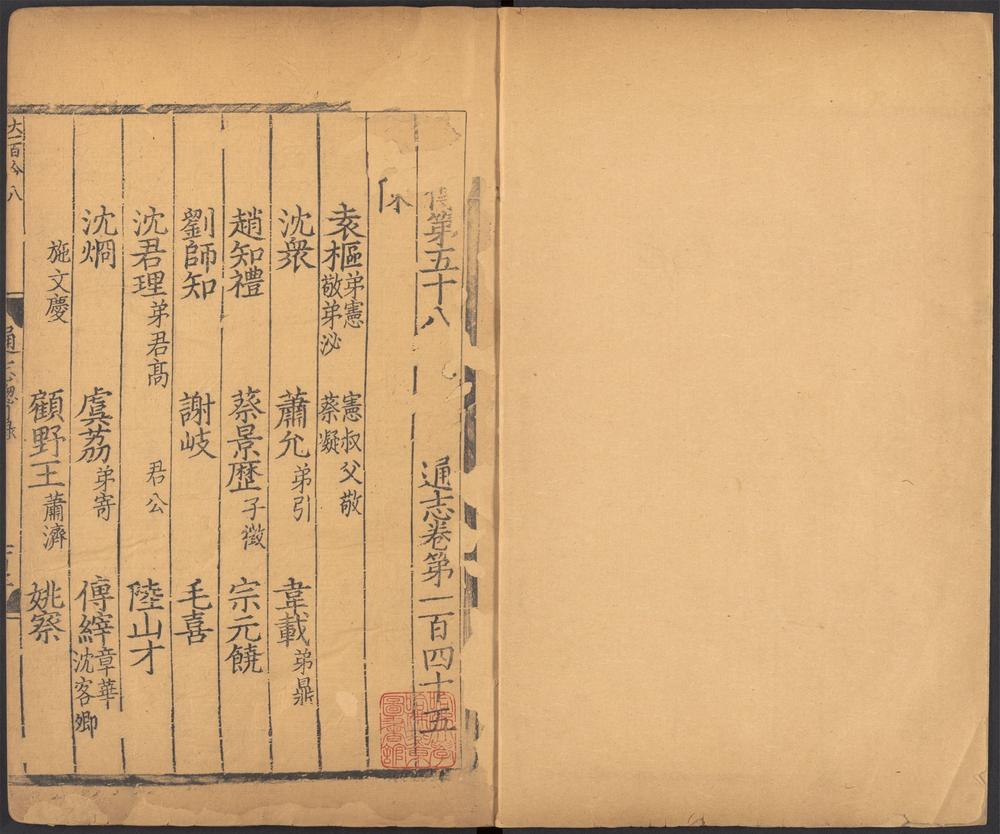 傳第五十八 通志卷第一百四十五
袁樞弟憲 敬弟泌 憲叔父敬 蔡凝
沈衆 蕭允弟引 韋載弟鼎
趙知禮 蔡景歷子徵 宗元饒
劉師知 謝岐 毛喜
沈君理弟君高 君公 陸山才
沈烱 虞荔弟寄 傅縡章華 沈客卿
施文慶 顧野王蕭濟 姚察
大百令八
通志